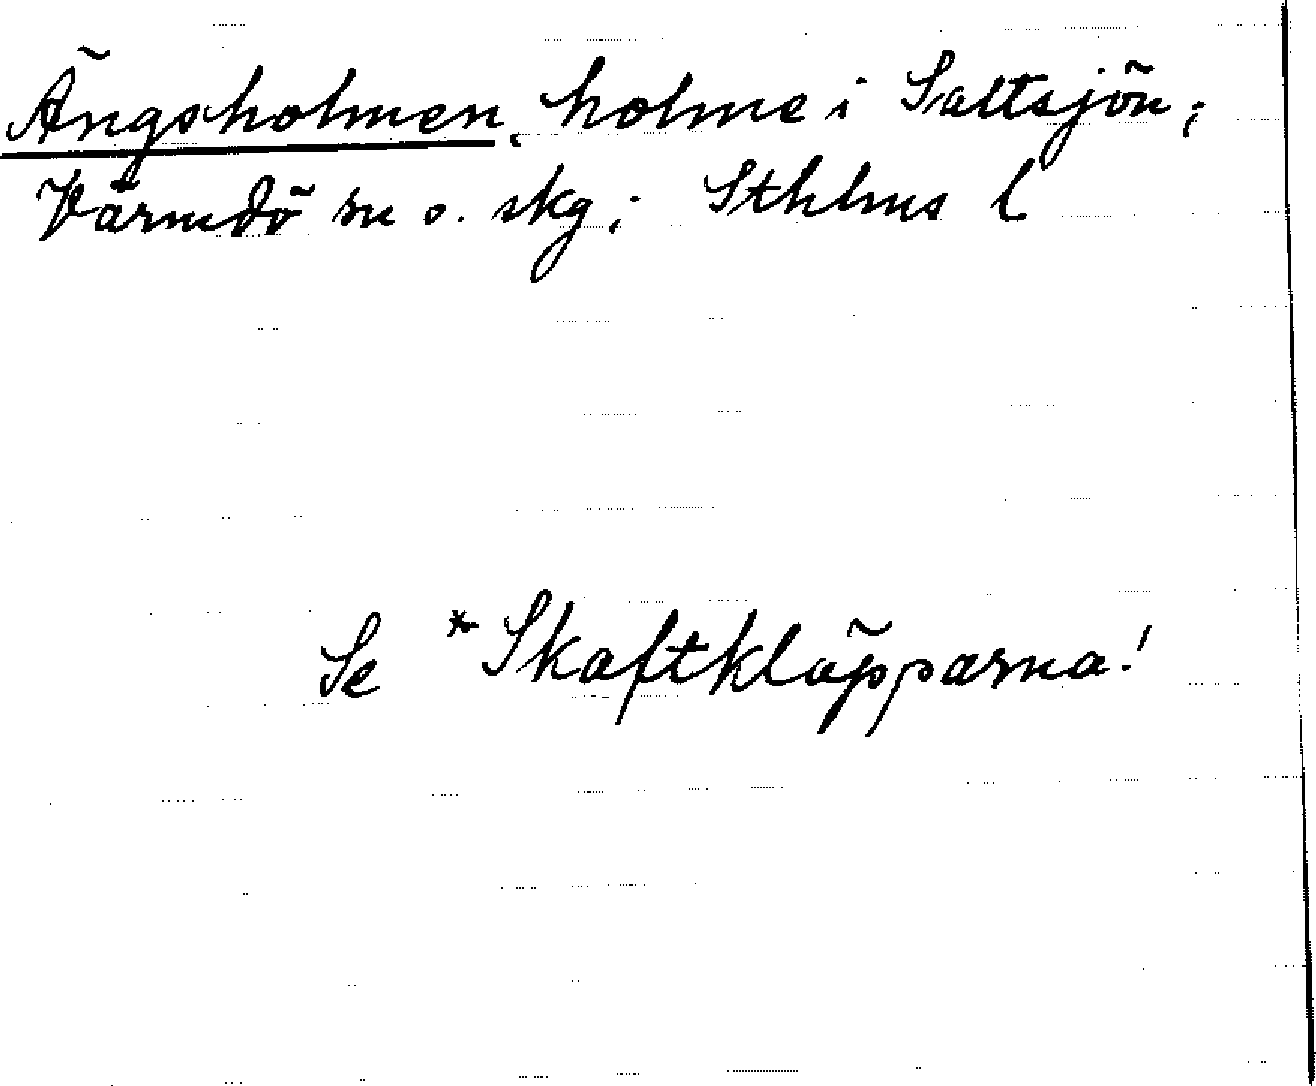 Ängsholmen, holme i Saltsjön;
Värmdö sn o. skg; Sthlms l
Se *Skaftkläpparna!